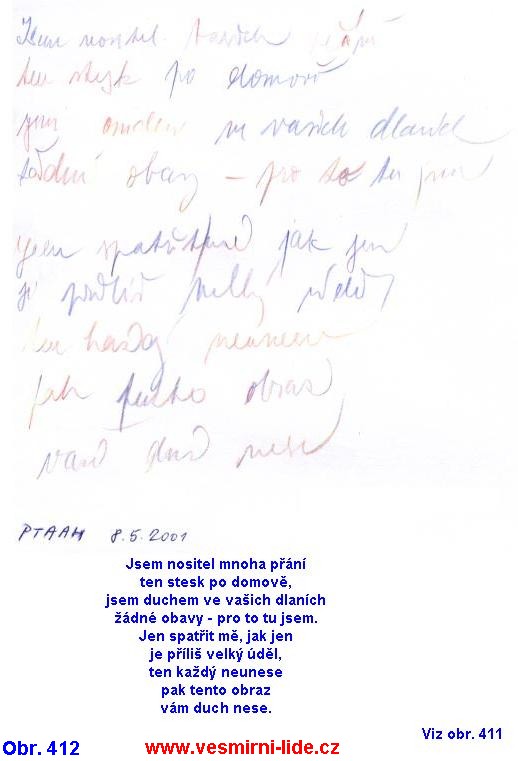 Jsem nositel
ten stesk po domově
jsem ve vašich dlaních
žádné obavy - pro to tu jsem
Jen spatřit mě jak jen
je příliš velký úděl,
ten každý neunese
pak tento obraz
vám duch nese
PTAAH 8.5.2001
Jsem nositel mnoha přání
ten stesk po domově,
jsem duchem ve vašich dlaních
žádné obavy - pro to tu jsem.
Jen spatřit mě, jak jen
je příliš velký úděl,
ten každý neunese
pak tento obraz
vám duch nese.
Viz obr. 411
Obr. 412 www.vesmirni-lide.cz